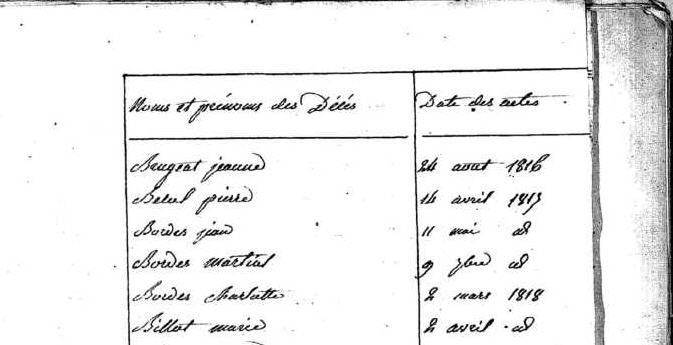 Noms et prénoms des Décés Date des actes
Brugeat jeanne 24 aout 1816
pierre 14 avril 1817
Bordes jean 11 mai id
Bordes martial 9 7bre id
Bordes charlotte 2 mars 1818
Billot marie 2 avril id